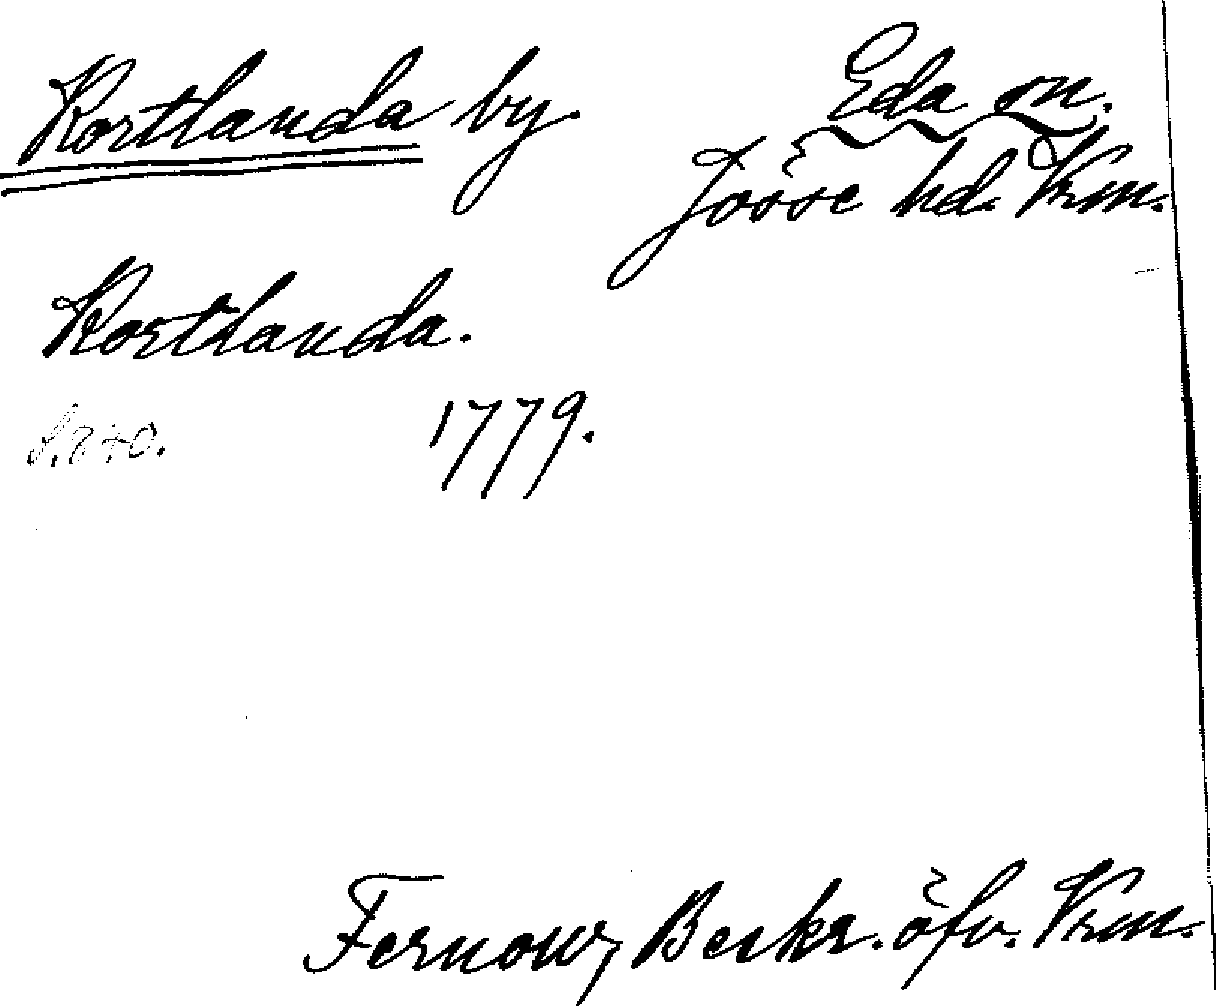 Kortlanda by.
Eda sn.
Jösse hd. Vrm.
Kortlanda.
1779.
Fernow, Beskr. öfv. Vrm.